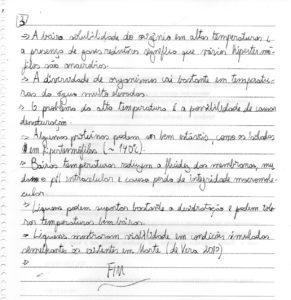 3)
→ A baixa solubilidade do oxigênio em altas temperaturas e
a presença de gases redutores significa que vários hipertermó-
filos são anaeróbios.
→ A diversidade de organismos cai bastante em temperatu-
ras da água muito elevadas.
→ O problema da alta temperatura é a possibilidade de causar
desnaturação.
→ Algumas proteínas podem ser bem estáveis como as isoladas
em hipertermófilos (~ 140°C).
→ Baixas temperaturas reduzem a fluidez das membranas, mu
dam o pH intracelular e causa perda de integridade macromole-
cular.
→ Líquens podem suportar bastante a desidratação e podem tole-
rar temperaturas bem baixas.
→ Líquens mostraram viabilidade em condições simuladas
semelhantes às existentes em Marte (de Vera 2010)
→
FIM